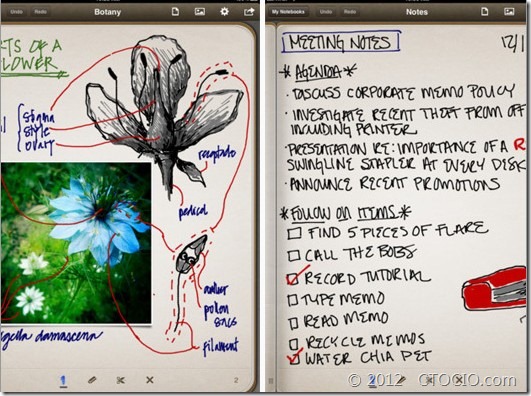 Undo Redo Botany
RTS OF A
LOWER
Stigma
style
ovary
receptacle
pedicel
anther
pollen
sacs
filament
gella damascena
1
2
My Notebooks Undo Redo Notes
MEETING NOTES 12/1
* AGENDA *
· DISCUSS CORPORATE MEMO POLICY
· INVESTIGATE RECENT THEFT FROM OFF
INCLUDING PRINTER
· PRESENTATION RE: IMPORTANCE OF A R
SWINGLINE STAPLER AT EVERY DESK
· ANNOUNCE RECENT PROMOTIONS
* FOLLOW ON ITEMS *
FIND 5 PIECES OF FLARE
CALL THE BOBS
RECORD TUTORIAL
TYPE MEMO
READ MEMO
RECYCLE MEMOS
WATER CHIA PET
© 2012 CTOCIO.com